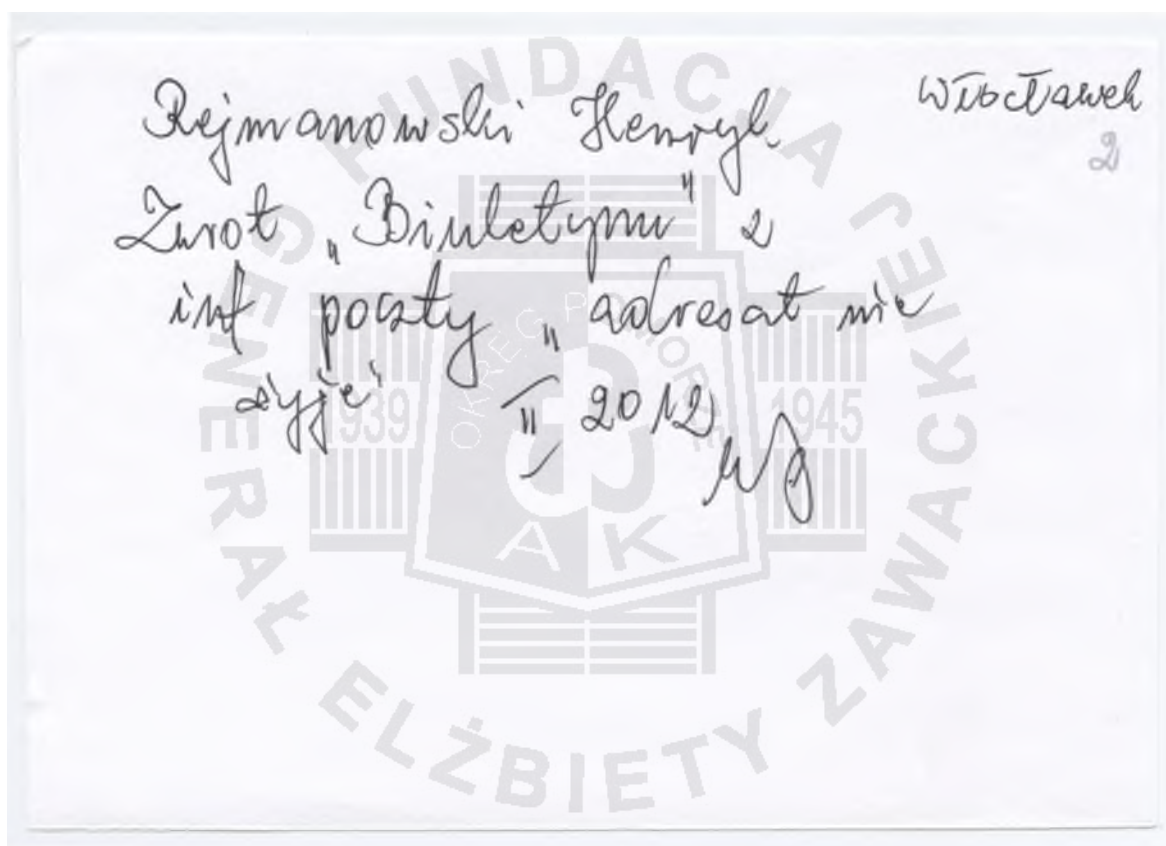 Włocławek
2
Rejmanowski Henryk
Zwrot „Biuletynu" z
inf poczty „adresat nie
żyje" II 2012
FUNDACJA GENERAŁ ELŻBIETY ZAWACKIEJ
OKRĘG POMORZE
1939 1945
AK